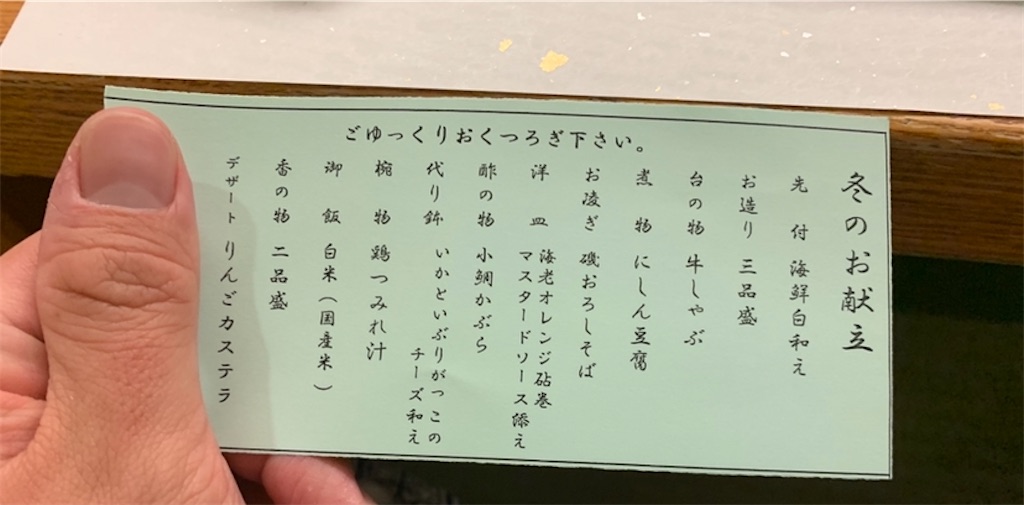 冬のお献立
先付 海鮮白和え
お造り 三品盛
台の物 牛しゃぶ
煮物 にしん豆腐
お凌ぎ 磯おろしそば
洋皿 海老オレンジ砧巻
マスタードソース添え
酢の物 小鯛かぶら
代り鉢 いかといぶりがっこの
チーズ和え
椀物 鶏つみれ汁
御飯 白米（国産米）
香の物 二品盛
デザート りんごカステラ
ごゆっくりおくつろぎ下さい。